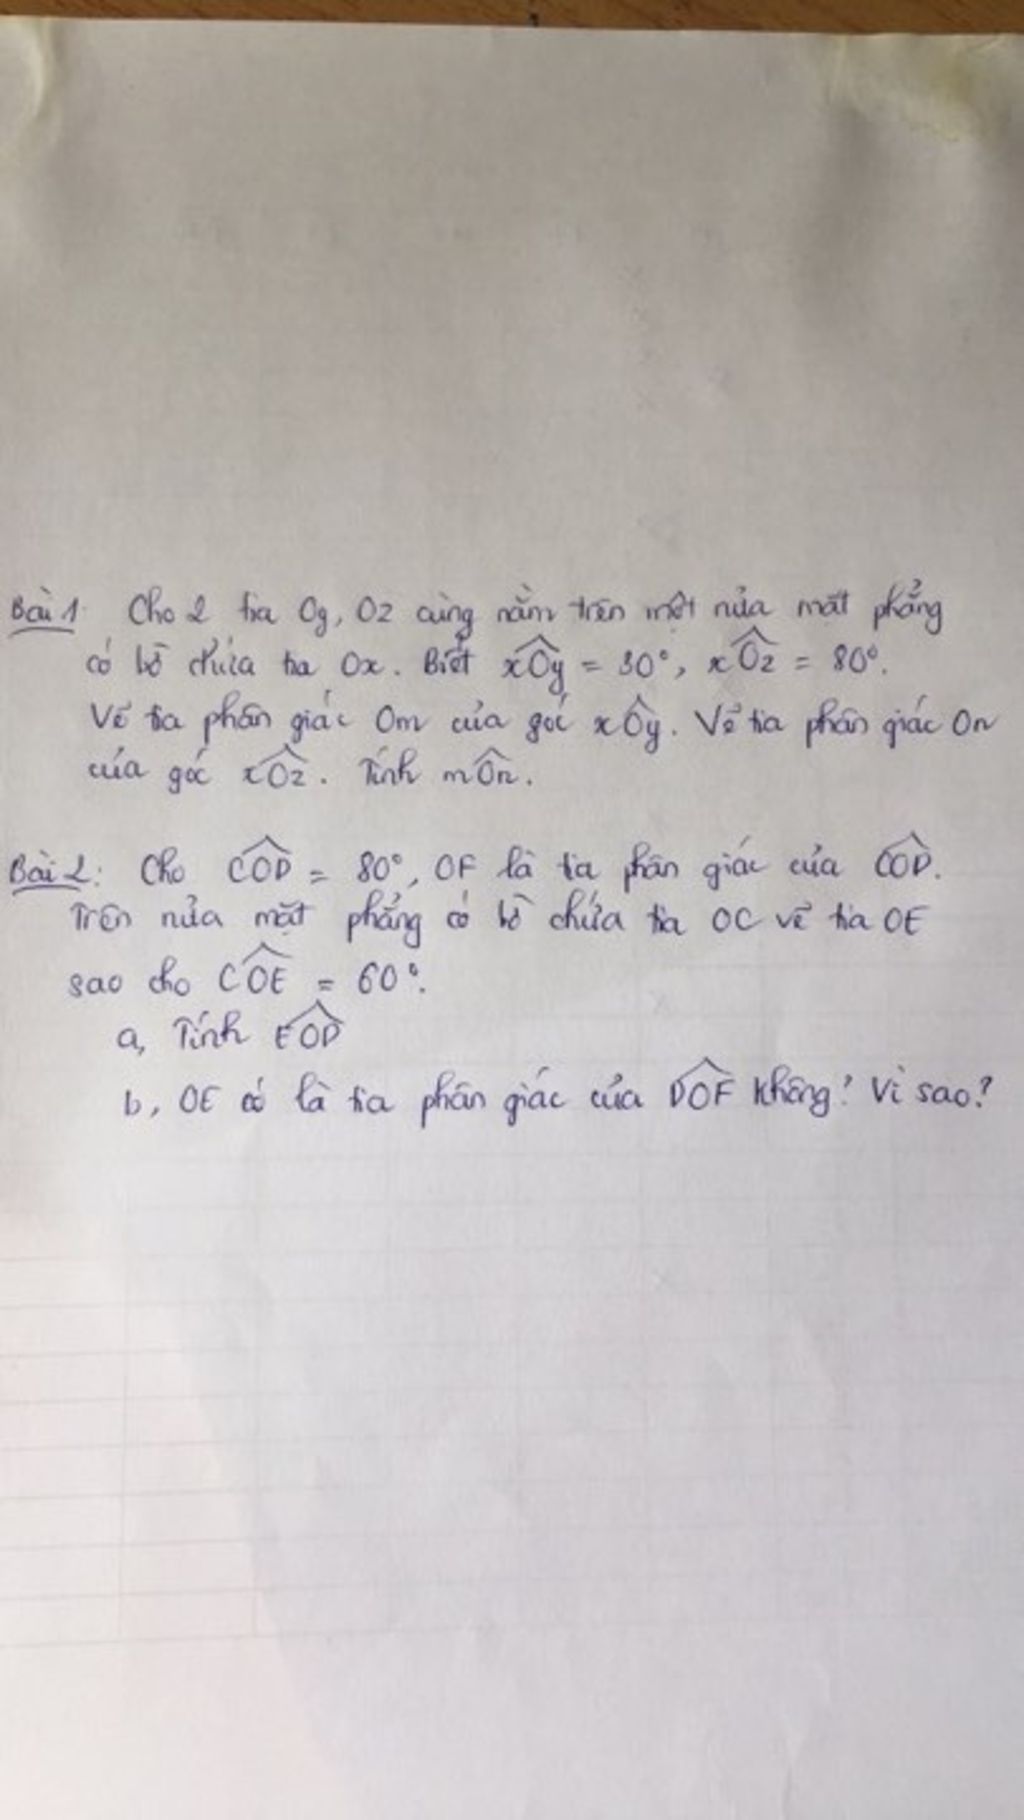 Bài 1. Cho 2 tia Oy, Oz cùng nằm trên một nửa mặt phẳng
có bờ chứa tia Ox. Biết xÔy = 30°, xÔz = 80°.
Vẽ tia phân giác Om của góc xÔy. Vẽ tia phân giác On
của góc xÔz. Tính mÔn.
Bài 2: Cho CÔD = 80°, OF là tia phân giác của CÔD.
Trên nửa mặt phẳng có bờ chứa tia OC vẽ tia OE
sao cho CÔE = 60°.
a, Tính EÔD
b, OE có là tia phân giác của DÔF không? Vì sao?